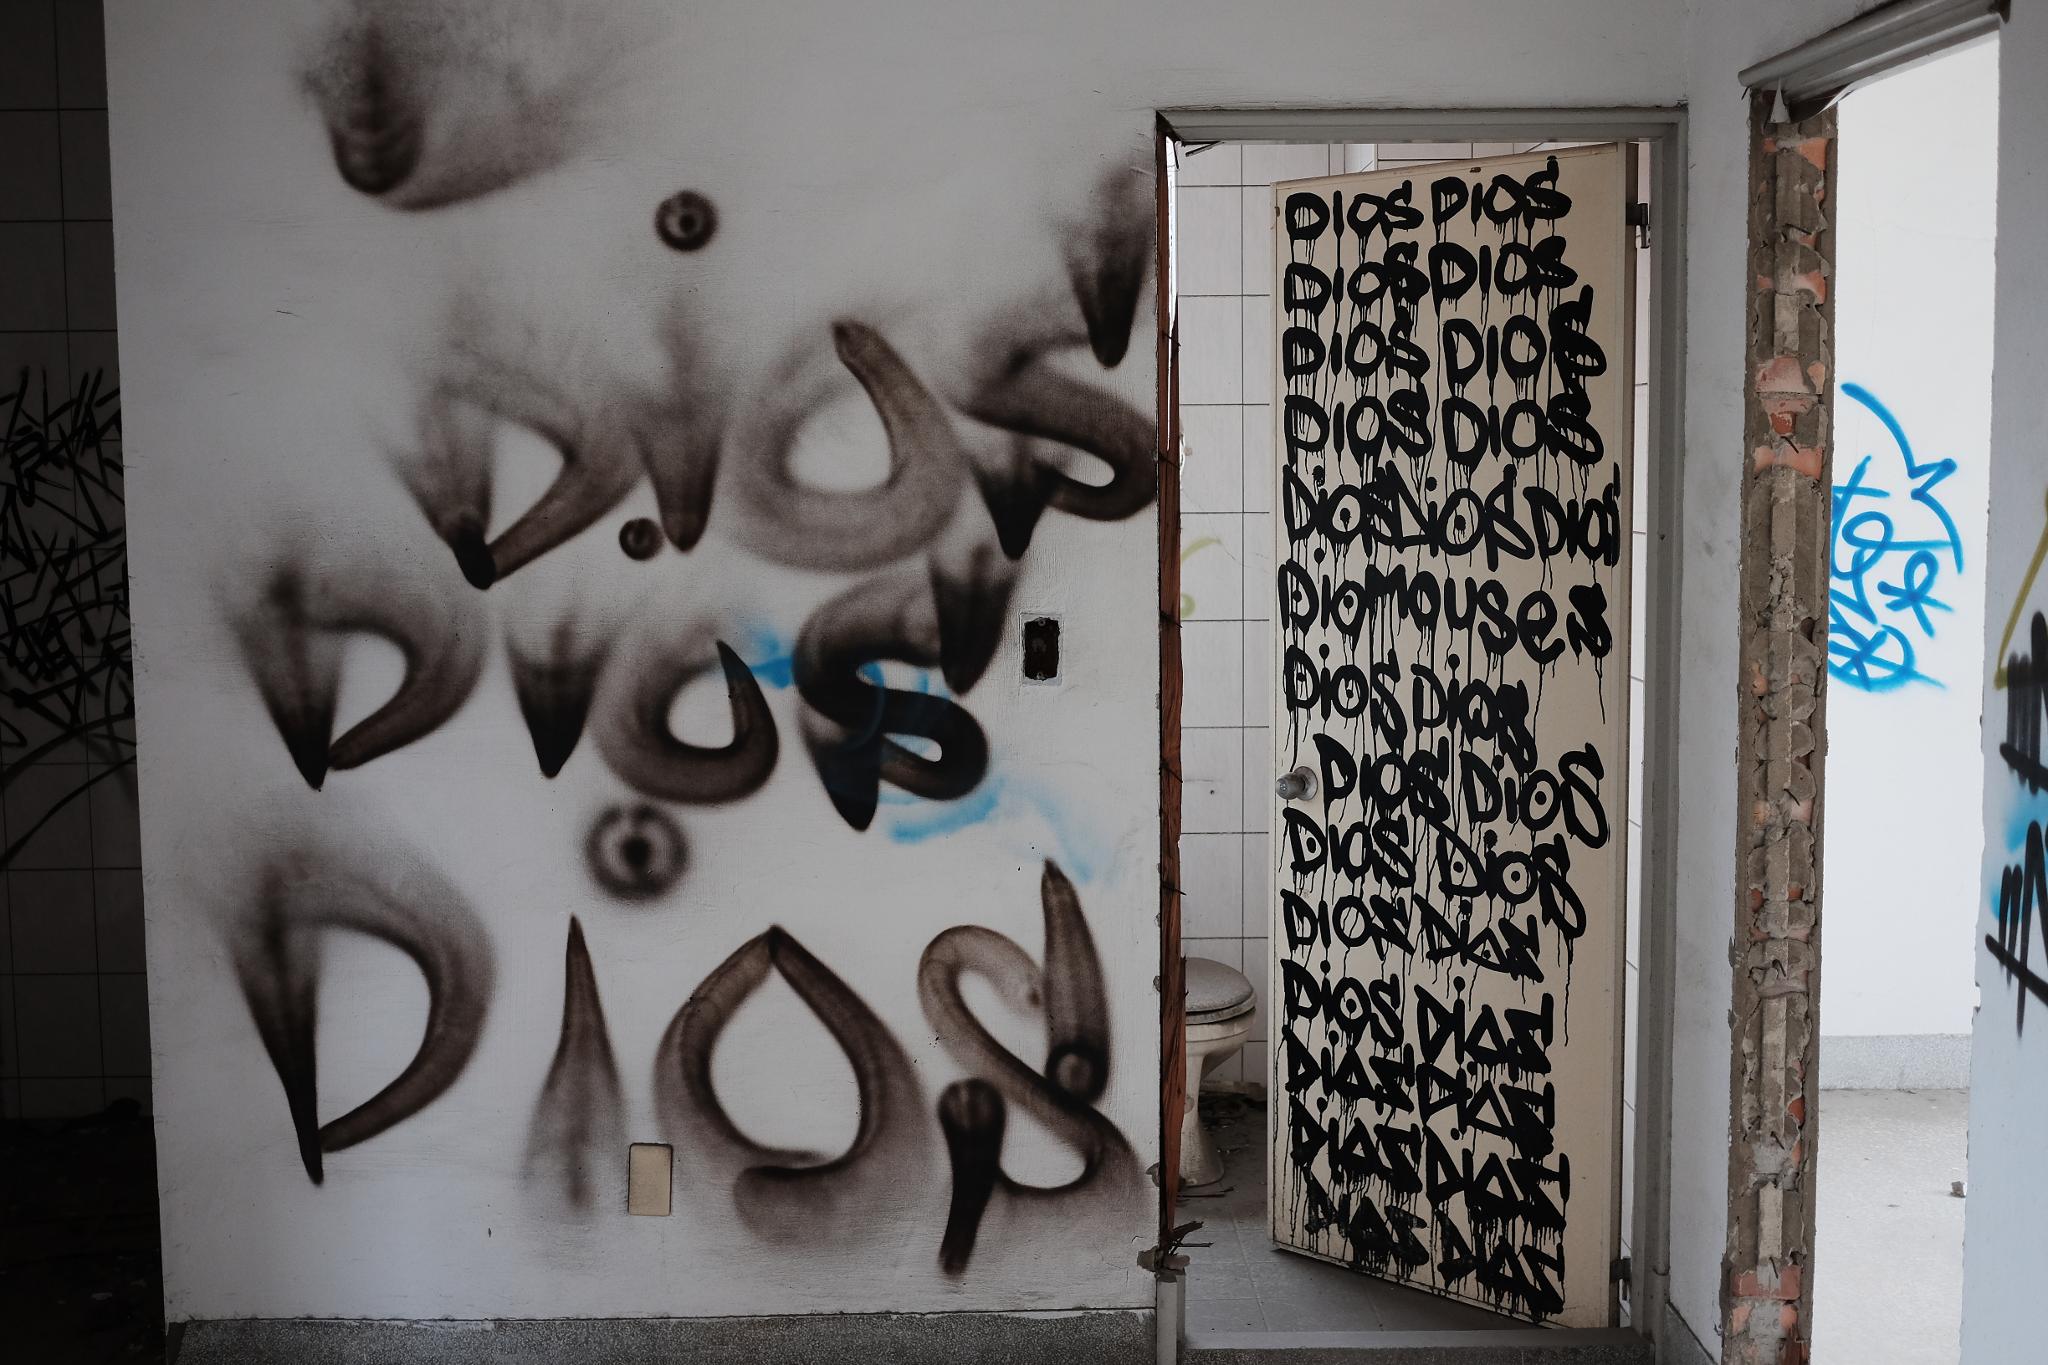 DiOS
DiOS
DiOS
DIOS DIOS
DIOS DIOS
DIOS DIOS
DIOS DIOS
DiOS DiOS DiOS
DiOMOUSe
DiOS DiOS
DIOS DiOS
DIOS DiOS
DIOS DiOS
DiOS DiOS
DiOS DiOS
DIOS DiOS
DIOS DIOS